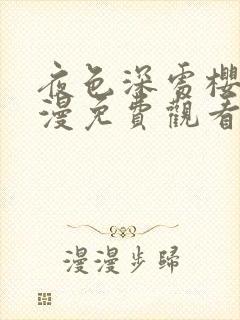 夜色深處櫻
漫免費觀看
漫漫步歸